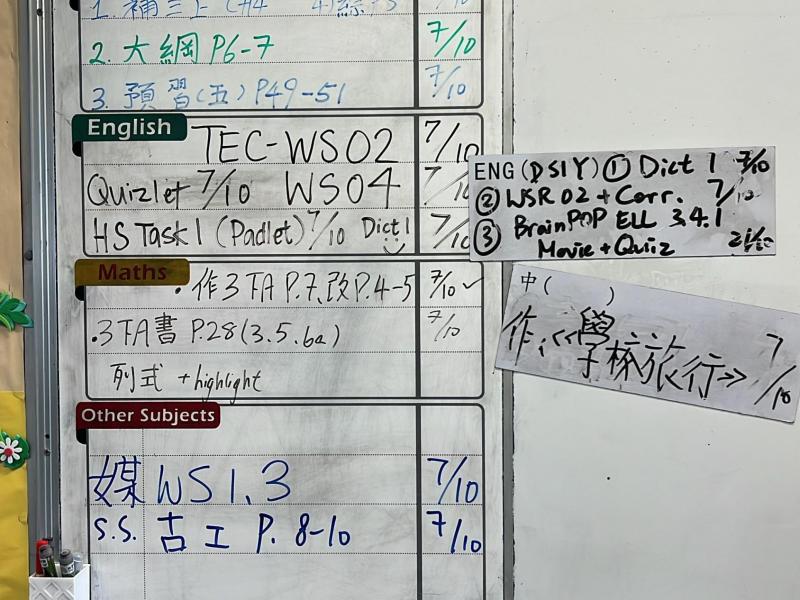 1. 補
2. 大綱 P6-7 7/10
3. 預習(五) P49-51 7/10
English
TEC-WS02 7/10
Quizlet 7/10 WS04 7/10
HS Task 1 (Padlet) 7/10 Dict 1 7/10
Maths
·作3TA P.7、改P.4-5 7/10 ✓
·3下A書 P.28(3.5.6a) 7/10
列式 + highlight
Other Subjects
媒 WS 1.3 7/10
S.S. 古工 P. 8-10 7/10
ENG (DSIY) ① Dict 1 7/10
② WSR 02 + Corr. 7/10
③ BrainPOP ELL 3.4.1
Movie + Quiz
中( )
作:《學校旅行》 7/10